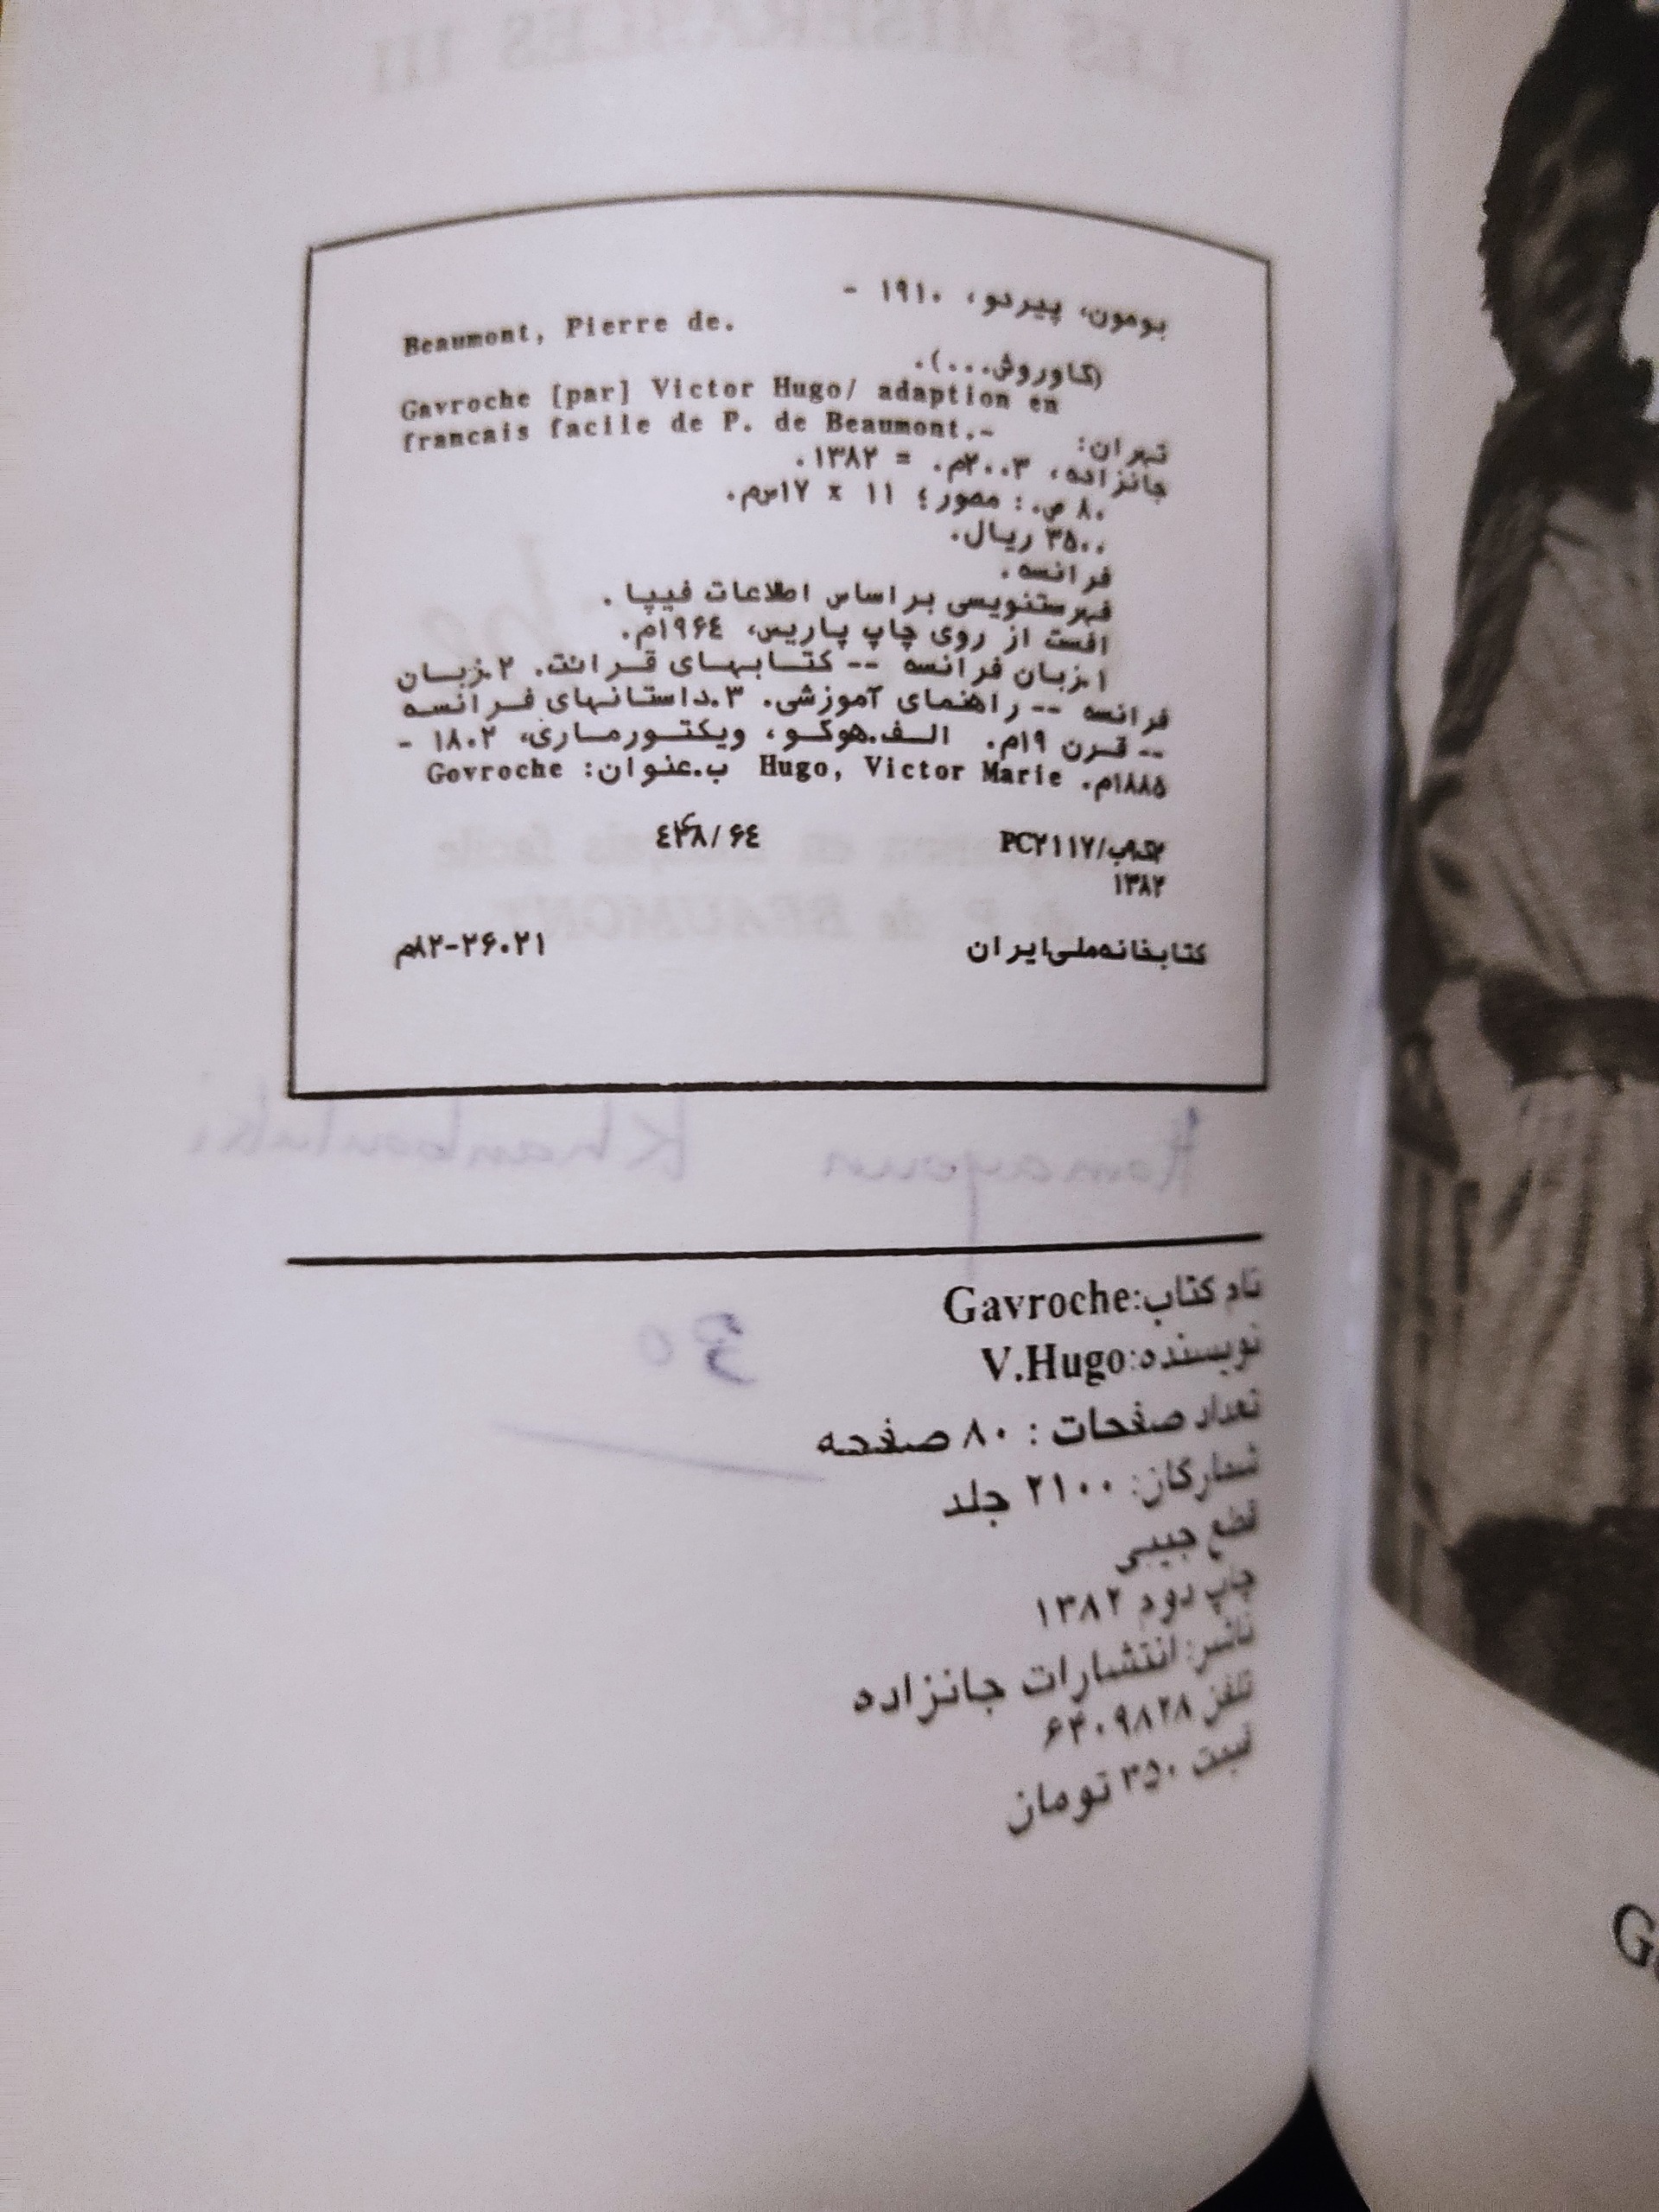 LES MISERABLES III
بومون، پیردو، ۱۹۱۰ -
Beaumont, Pierre de.
(گاوروش...).
Gavroche [par] Victor Hugo/ adaption en
francais facile de P. de Beaumont.-
تهران:
جانزاده، ۲۰۰۳م. = ۱۳۸۲.
۸۰ ص.: مصور؛ ۱۱ x ۱۷س‌م.
۳۵۰۰ ریال.
فرانسه.
فهرستنویسی براساس اطلاعات فیپا.
افست از روی چاپ پاریس، ۱۹۶۴م.
۱.زبان فرانسه -- کتابهای قرائت. ۲.زبان
فرانسه -- راهنمای آموزشی. ۳.داستانهای فرانسه
-- قرن ۱۹م. الف.هوگو، ویکتورماری، ۱۸۰۲ -
۱۸۸۵م. Hugo, Victor Marie ب.عنوان: Govroche
PC۲۱۱۷/ ۴۴۸/۶۴
۱۳۸۲
کتابخانه‌ملی‌ایران ۲۶۰۲۱-۸۲م
Homayoun Khanboulaki
نام کتاب:Gavroche
30
نویسنده:V.Hugo
تعداد صفحات : ۸۰ صفحه
شمارگان: ۲۱۰۰ جلد
قطع جیبی
چاپ دوم ۱۳۸۲
ناشر: انتشارات جانزاده
تلفن ۶۴۰۹۸۲۸
قیمت ۳۵۰ تومان